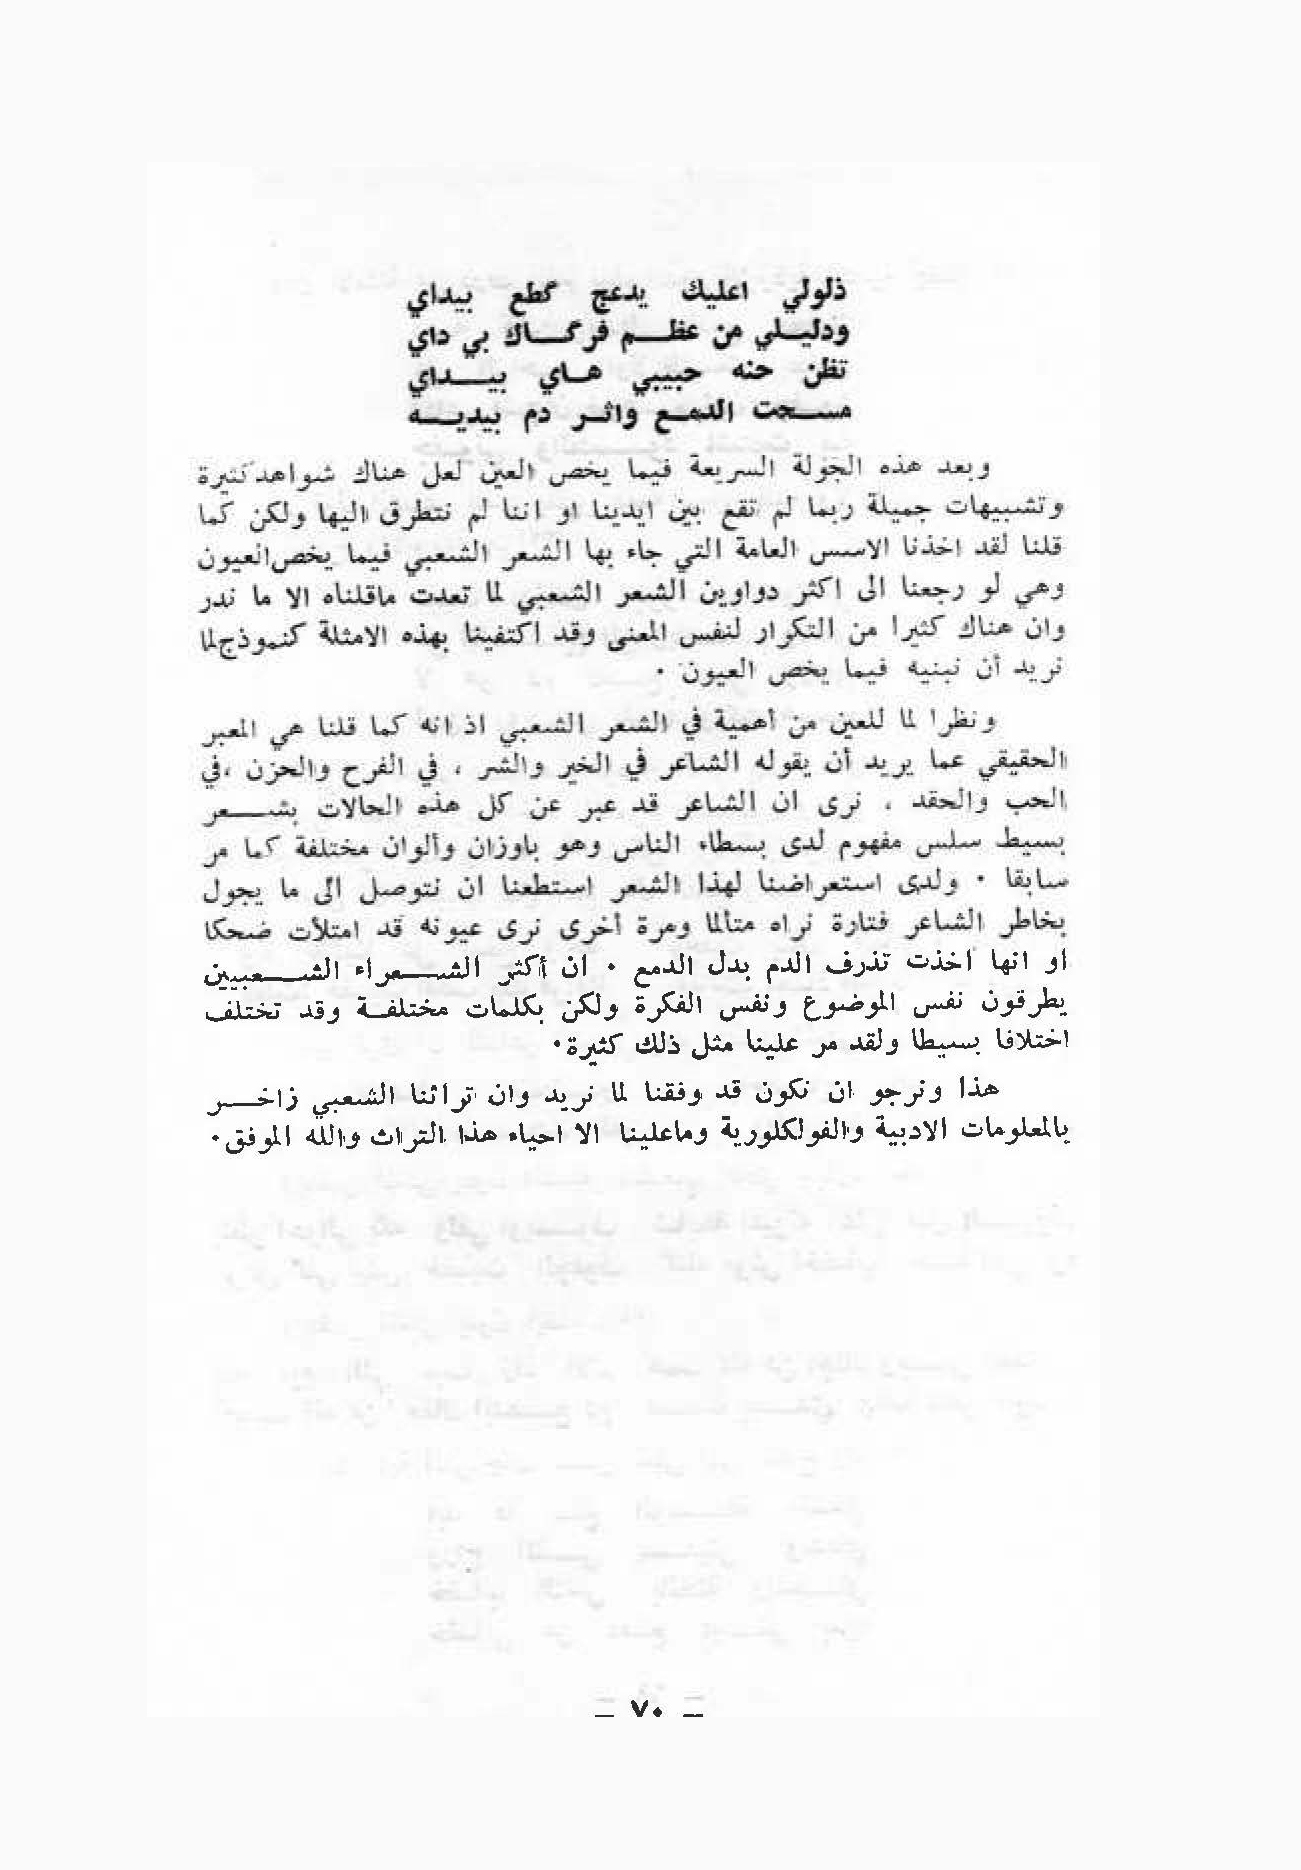 ذلولي اعليك يدعج گطع بيداي
ودليلي من عظم فرگاك بي داي
تظن حنه حبيبي هاي بيداي
مسحت الدمع واثر دم بيديه
وبعد هذه الجولة السريعة فيما يخص العين لعل هناك شواهد كثيرة
وتشبيهات جميلة ربما لم تقع بين ايدينا او اننا لم نتطرق اليها ولكن كما
قلنا لقد اخذنا الاسس العامة التي جاء بها الشعر الشعبي فيما يخص العيون
وهي لو رجعنا الى اكثر دواوين الشعر الشعبي لما تعدت ماقلناه الا ما ندر
وان هناك كثيرا من التكرار لنفس المعنى وقد اكتفينا بهذه الامثلة كنموذج لما
نريد أن نبنيه فيما يخص العيون ·
ونظرا لما للعين من أهمية في الشعر الشعبي اذ انه كما قلنا هي المعبر
الحقيقي عما يريد أن يقوله الشاعر في الخير والشر ، في الفرح والحزن ،في
الحب والحقد ، نرى ان الشاعر قد عبر عن كل هذه الحالات بشعر
بسيط سلس مفهوم لدى بسطاء الناس وهو باوزان وألوان مختلفة كما مر
سابقا · ولدى استعراضنا لهذا الشعر استطعنا ان نتوصل الى ما يجول
بخاطر الشاعر فتارة نراه متألما ومرة أخرى نرى عيونه قد امتلأت ضحكا
أو انها أخذت تذرف الدم بدل الدمع · ان أكثر الشعراء الشعبيين
يطرقون نفس الموضوع ونفس الفكرة ولكن بكلمات مختلفة وقد تختلف
اختلافا بسيطا ولقد مر علينا مثل ذلك كثيرة·
هذا ونرجو ان نكون قد وفقنا لما نريد وان تراثنا الشعبي زاخر
بالمعلومات الادبية والفولكلورية وماعلينا الا احياء هذا التراث والله الموفق·
— ٧٠ —